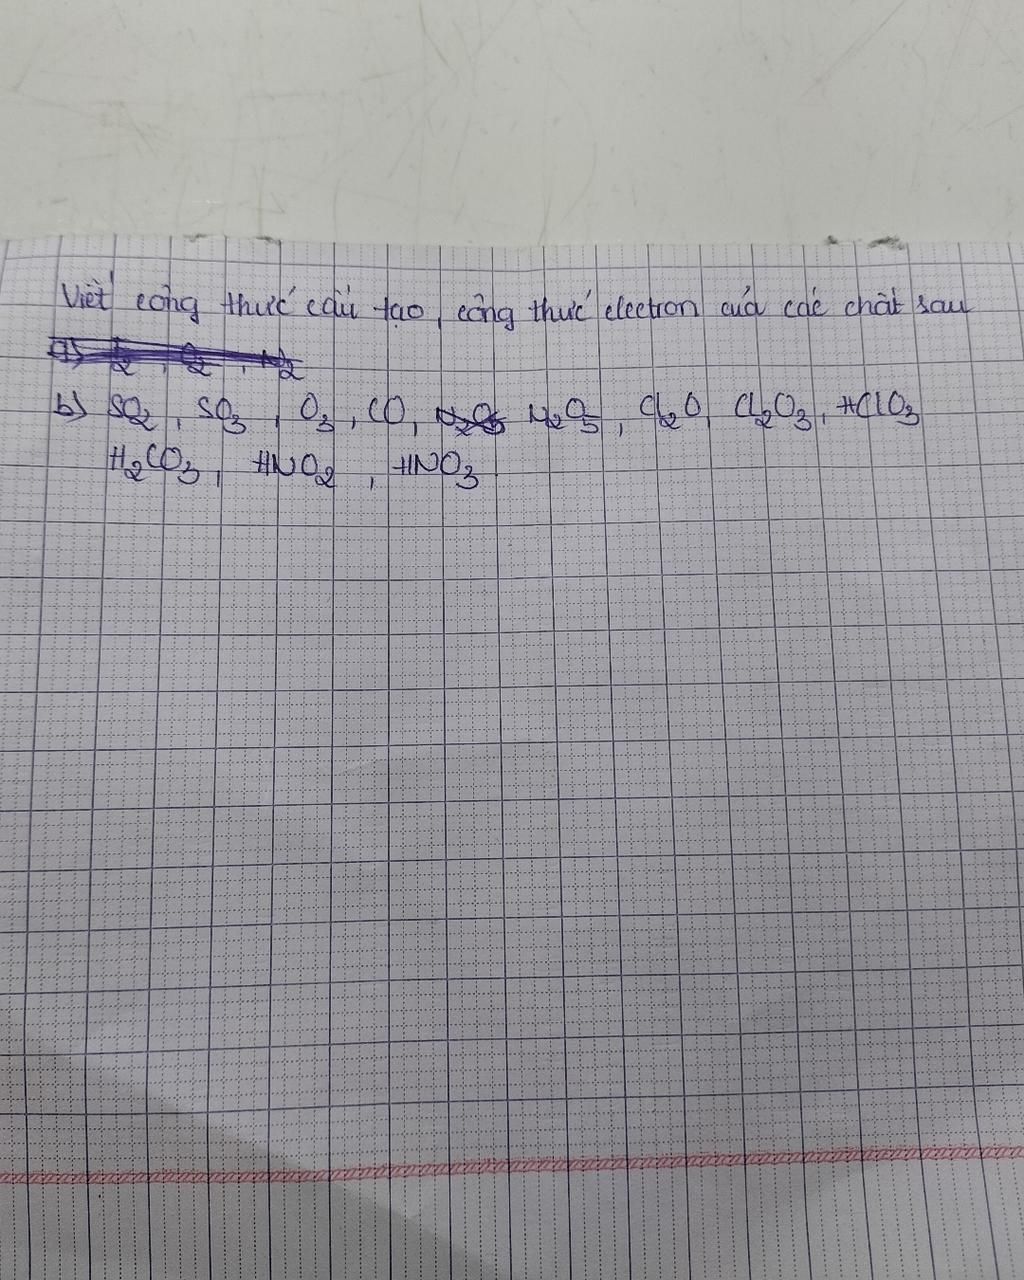 Viết công thức cấu tạo, công thức electron của các chất sau
a) I2, O2, N2
b) SO2, SO3, O3, CO, N2O5 N2O5, Cl2O Cl2O3, HClO3
H2CO3, HNO2, HNO3